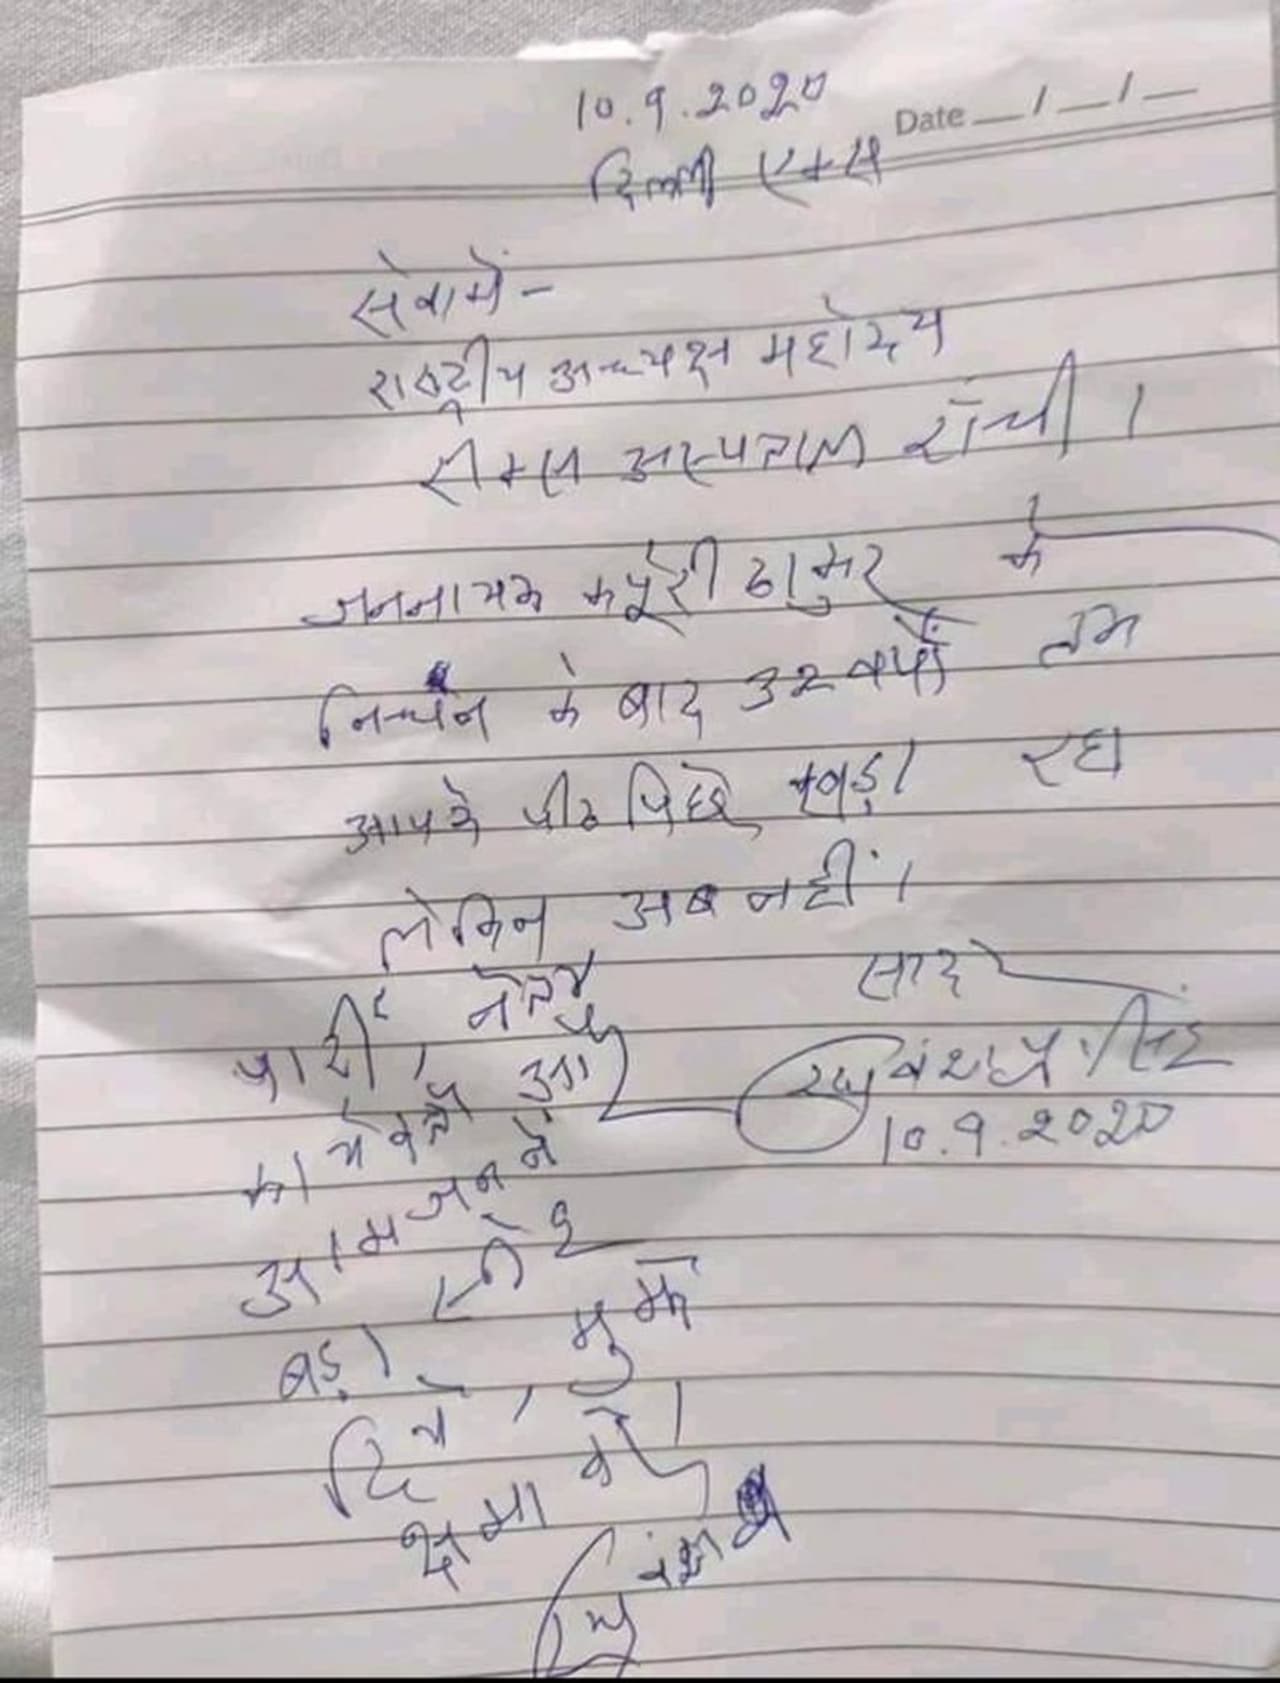 10.9.2020
Date __/__/__
दिल्ली एम्स
सेवामें-
राष्ट्रीय अध्यक्ष महोदय
रीम्स अस्पताल राँची।
जननायक कर्पूरी ठाकुर के
निधन के बाद 32 वर्षों तक
आपके पीठ पिछे खड़ा रहा
लेकिन अब नहीं।
पार्टी, नेता,
कार्यकर्ता और
आमजन ने
बड़ा स्नेह
दिया, मुझे
क्षमा करें।
सादर
रघुवंश प्र० सिंह
10.9.2020
रघुवंश